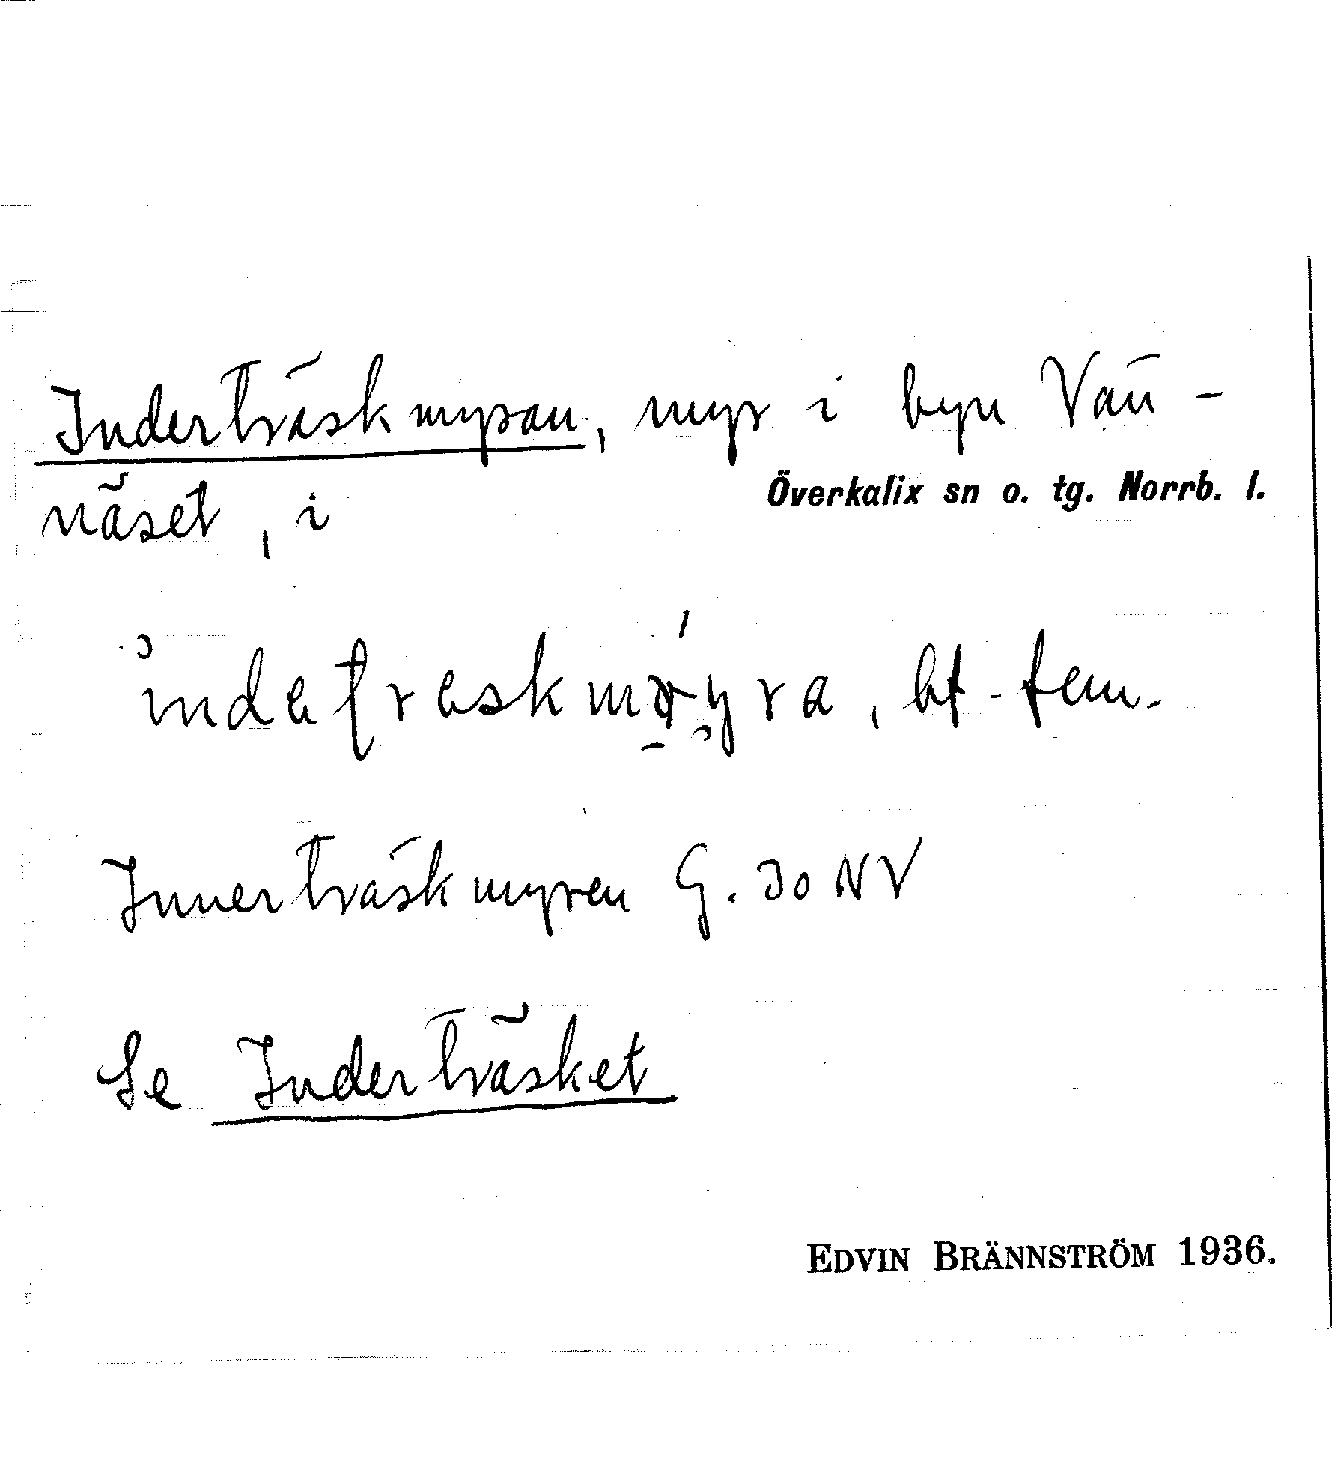 Inderträskmyran, myr i byn Vän-
näset, i Överkalix sn o. tg. Norrb. l.
bf. fem.
Innerträskmyren G. 30 NV
Se Inderträsket
EDVIN BRÄNNSTRÖM 1936.